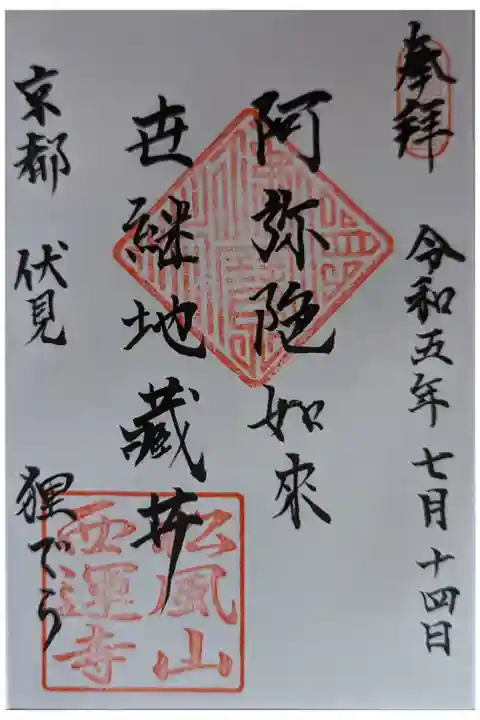 奉拝
令和五年七月十四日
阿弥陀如来
世継地蔵菩
京都 伏見 狸でら
松風山
西運寺